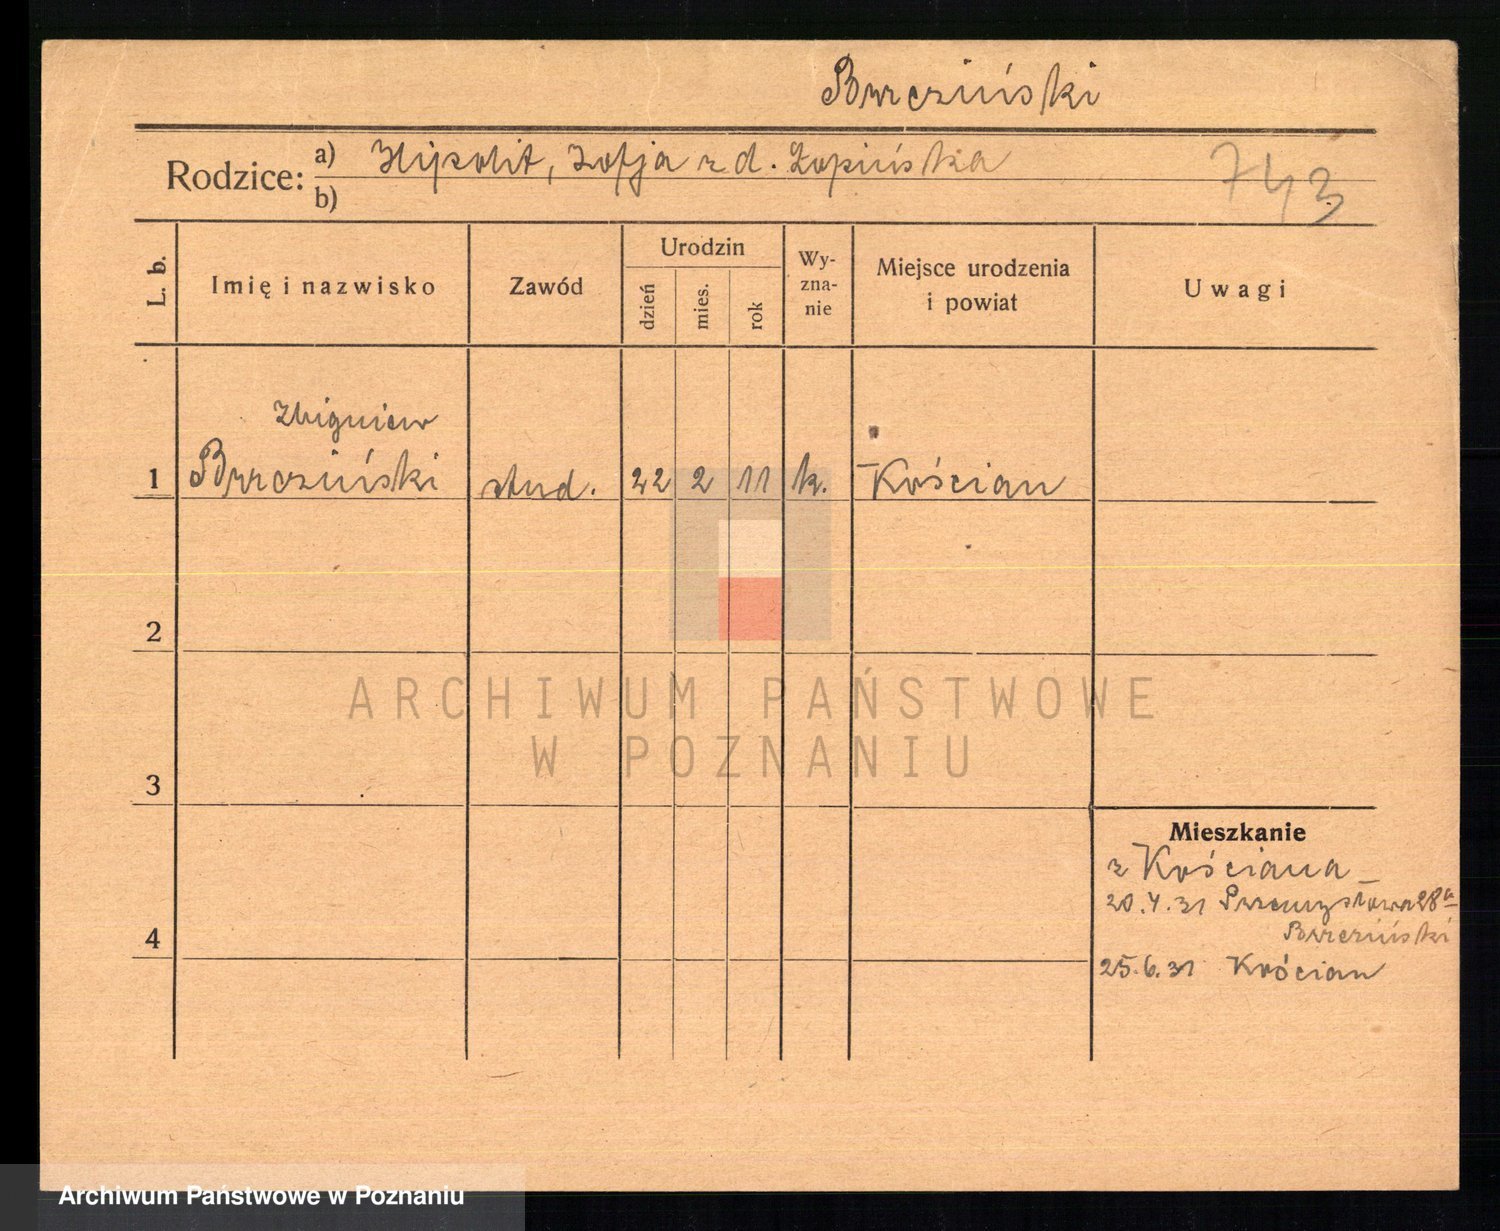 Brzeziński
Rodzice: a) Hipolit, Zofja z d. Łopińska
b)
743
L. b.
Imię i nazwisko
Zawód
Urodzin
dzień
mies.
rok
Wy-
zna-
nie
Miejsce urodzenia
i powiat
Uwagi
Zbigniew
1 Brzeziński stud. 22 2 11 k. Kościan
2
3
4
Mieszkanie
z Kościana
20.4.31 Przemysłowa 28a
Brzeziński
25.6.31 Kościan
ARCHIWUM PAŃSTWOWE
W POZNANIU
Archiwum Państwowe w Poznaniu